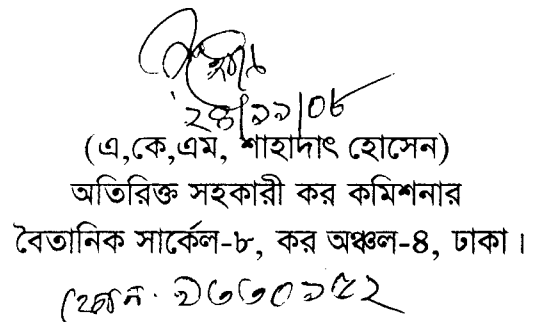 ২৪/১১/০৮
(এ,কে,এম, শাহাদাৎ হোসেন)
অতিরিক্ত সহকারী কর কমিশনার
বৈতানিক সার্কেল-৮, কর অঞ্চল-৪, ঢাকা।
ফোন: ৯৩৩০১৫২